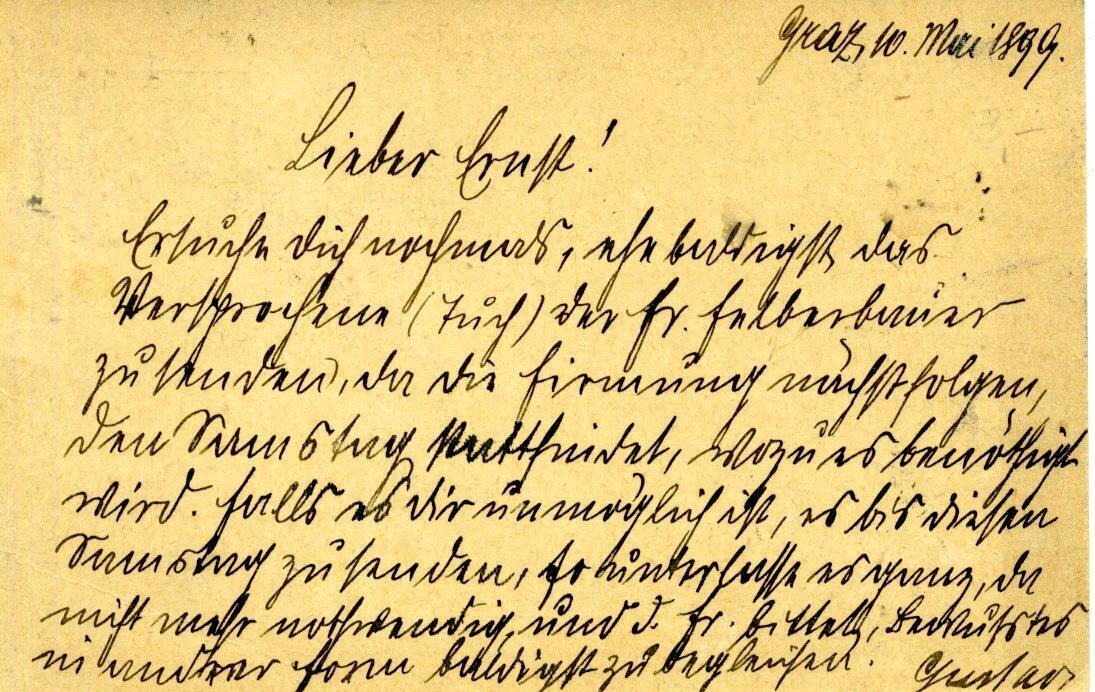 Graz, 10. Mai 1899.
Lieber Ernst!
Ersuche dich nochmals, ehebaldigst das
Versprochene (Tuch) der Fr. Felberbauer
zusenden, da die Firmung nächstfolgen,
den Samstag stattfindet, wozu es benöthigt
wird. Falls es dir unmöglich ist, es bis diesen
Samstag zusenden, so unterlasse es ganz, da
nicht mehr nothwendig, und d. Fr. bittet, Bewußtes
in anderer Form baldigst zu begleichen. Gustav